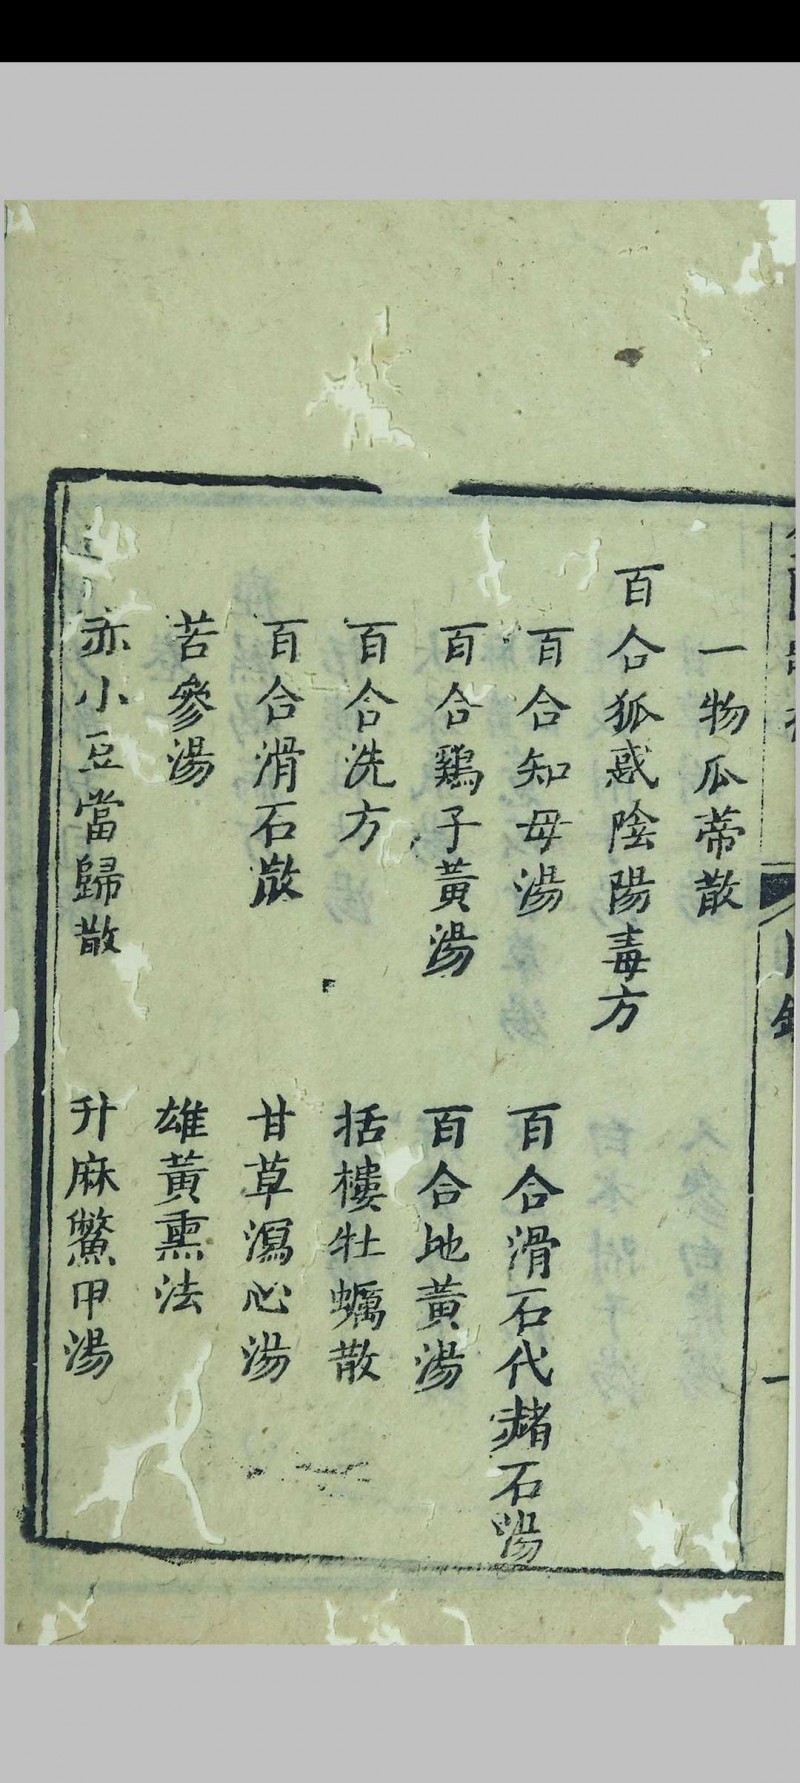 目錄
一物瓜蒂散
百合狐惑陰陽毒方
百合知母湯
百合滑石代赭石湯
百合鷄子黃湯
百合地黃湯
百合洗方
括樓牡蠣散
百合滑石散
甘草瀉心湯
苦參湯
雄黃熏法
赤小豆當歸散
升麻鱉甲湯